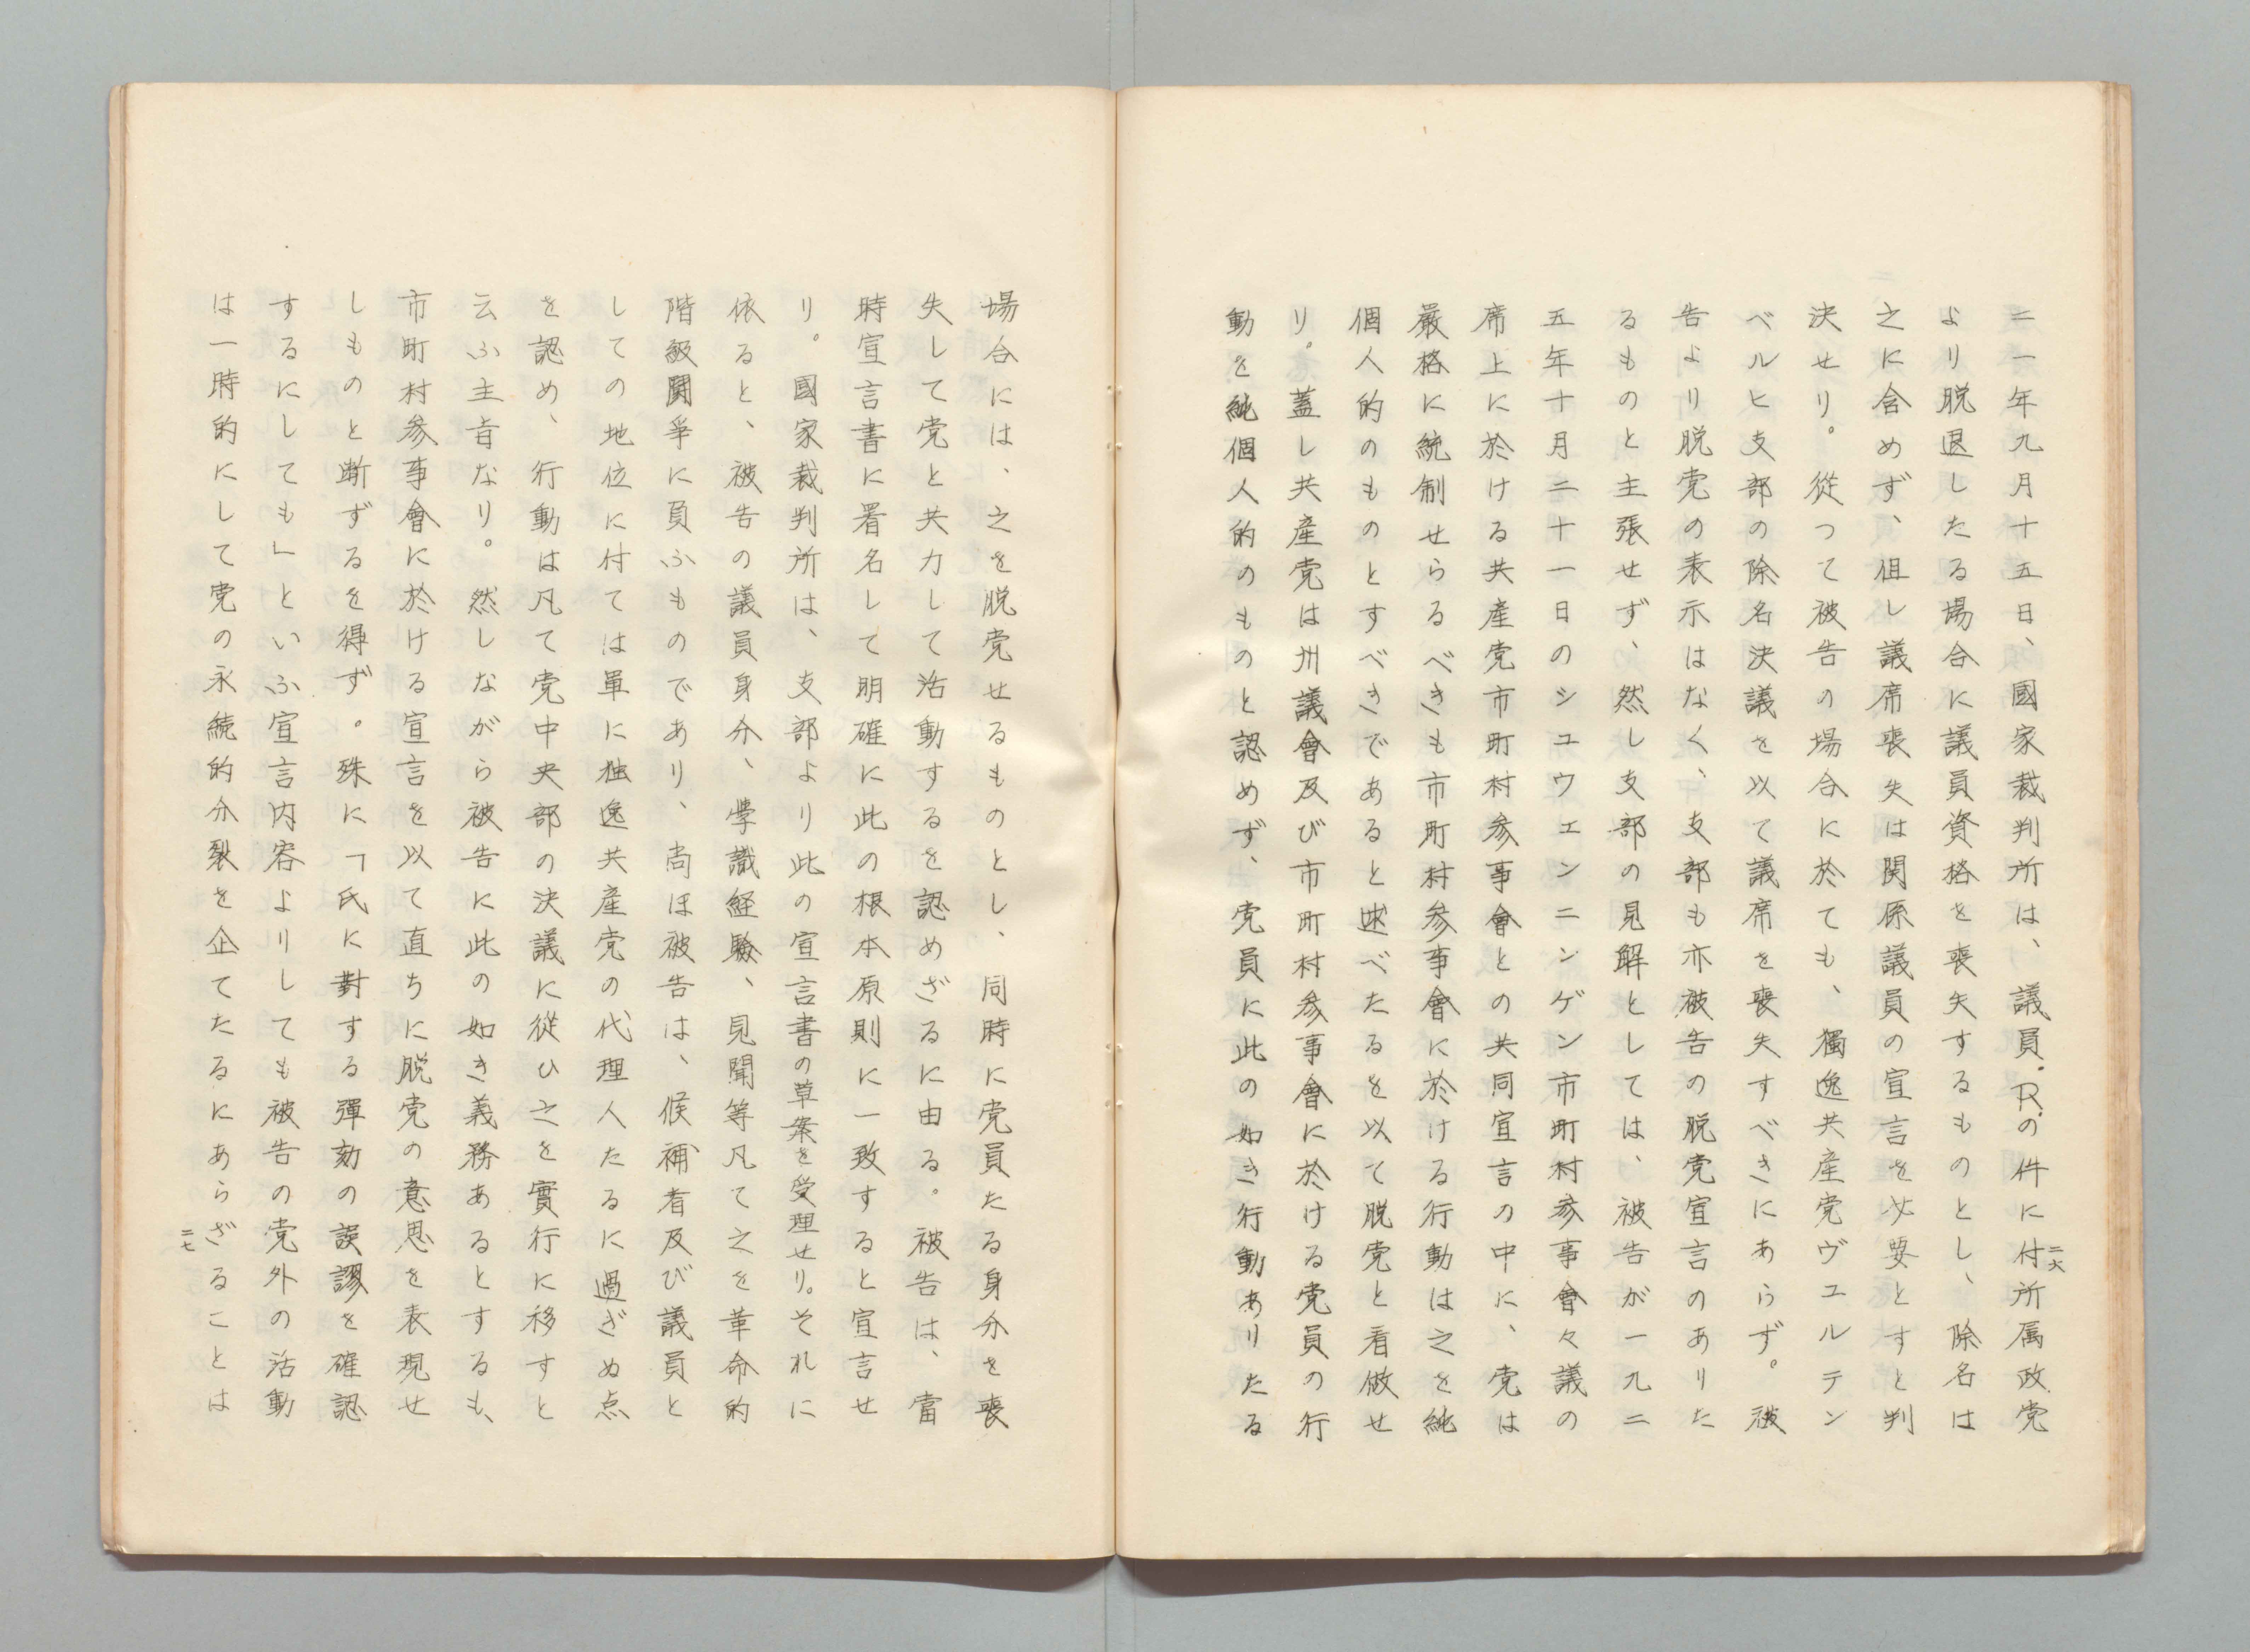 二一年九月十五日、國家裁判所は、議員.R.の件に付所属政党
より脱退したる場合に議員資格を喪失するものとし、除名は
之に含めず、但し議席喪失は関係議員の宣言を必要とすと判
決せり。從つて被告の場合に於ても、獨逸共産党ヴュルテン
ベルヒ支部の除名決議を以て議席を喪失すべきにあらず。被
告より脱党の表示はなく、支部も亦被告の脱党宣言のありた
るものと主張せず、然し支部の見解としては、被告が一九二
五年十月二十一日のシユウェンニンゲン市町村参事會々議の
席上に於ける共産党市町村参事會との共同宣言の中に、党は
嚴格に統制せらるべきも市町村参事會に於ける行動は之を純
個人的のものとすべきであると述べたるを以て脱党と看做せ
り。蓋し共産党は州議會及び市町村参事會に於ける党員の行
動を純個人的のものと認めず、党員に此の如き行動ありたる
二六
場合には、之を脱党せるものとし、同時に党員たる身分を喪
失して党と共力して活動するを認めざるに由る。被告は、當
時宣言書に署名して明確に此の根本原則に一致すると宣言せ
り。國家裁判所は、支部より此の宣言書の草案を受理せり。それに
依ると、被告の議員身分、學識経驗、見聞等凡て之を革命的
階級闘爭に負ふものであり、尚ほ被告は、候補者及び議員と
しての地位に付ては單に独逸共産党の代理人たるに過ぎぬ点
を認め、行動は凡て党中央部の決議に從ひ之を實行に移すと
云ふ主旨なり。然しながら被告に此の如き義務あるとするも、
市町村参事會に於ける宣言を以て直ちに脱党の意思を表現せ
しものと斷ずるを得ず。殊に「氏に對する彈劾の誤謬を確認
するにしても」といふ宣言内容よりしても被告の党外の活動
は一時的にして党の永続的分裂を企てたるにあらざることは
二七